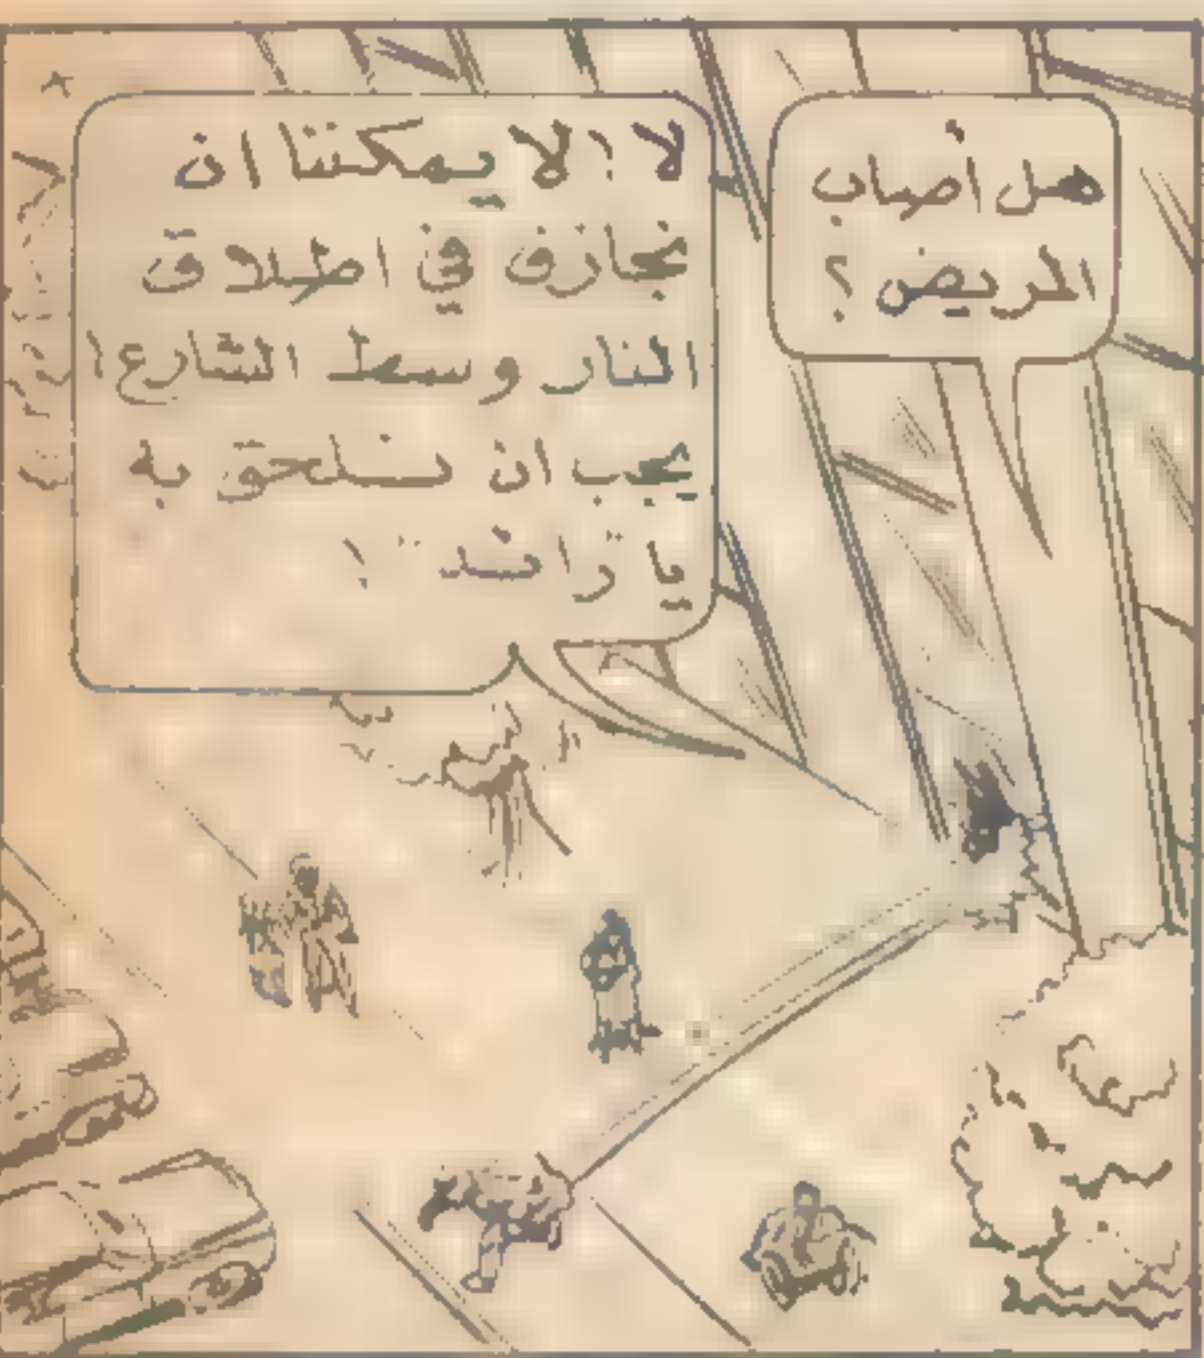 هل أصاب
المريض ؟
لا ! لا يمكننا ان
نجازف في اطلاق
النار وسط الشارع !
يجب ان نلحق به
يا راند !